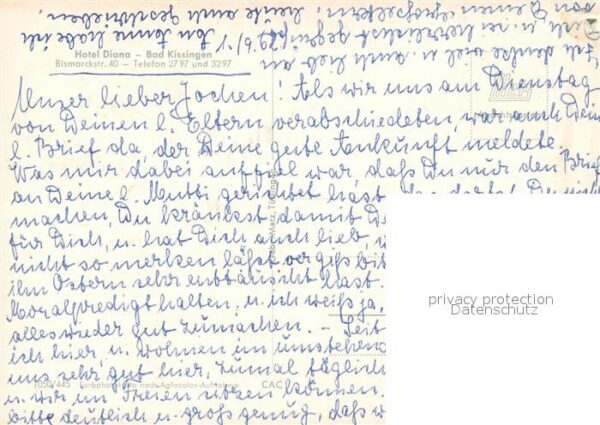 An Anne habe ich
heute auch geschrieben.
Ich denke viel u. auch lieb an
Dich u. sei herzlichst gegrüßt
von Deinen
Hotel Diana – Bad Kissingen
Bismarckstr. 40 – Telefon 2797 und 3297
Unser lieber Jochen! Als wir uns am Dienstag
von Deinen l. Eltern verabschiedeten, war auch Dein
l. Brief da, der Deine gute Ankunft meldete.
Was mir dabei auffiel war, daß Du nur den Brief
an Deine l. Mutti gerichtet hast
machen, Du kränkst damit De
für Dich, u. hat Dich auch lieb,
nicht so merken läßt vergiß bit
ihn Ostern sehr enttäuscht hast.
Moralpredigt halten, u. ich weiß ja,
alles wieder gut zumachen. – Seit
ich hier, u. wohnen im umstehend
uns sehr gut hier, zumal täglich
u. wir im Freien sitzen können.
bitte deutlich u. groß genug, daß w
privacy protection
Datenschutz
Farbphoto nach Agfacolor-Aufnahme
CAC